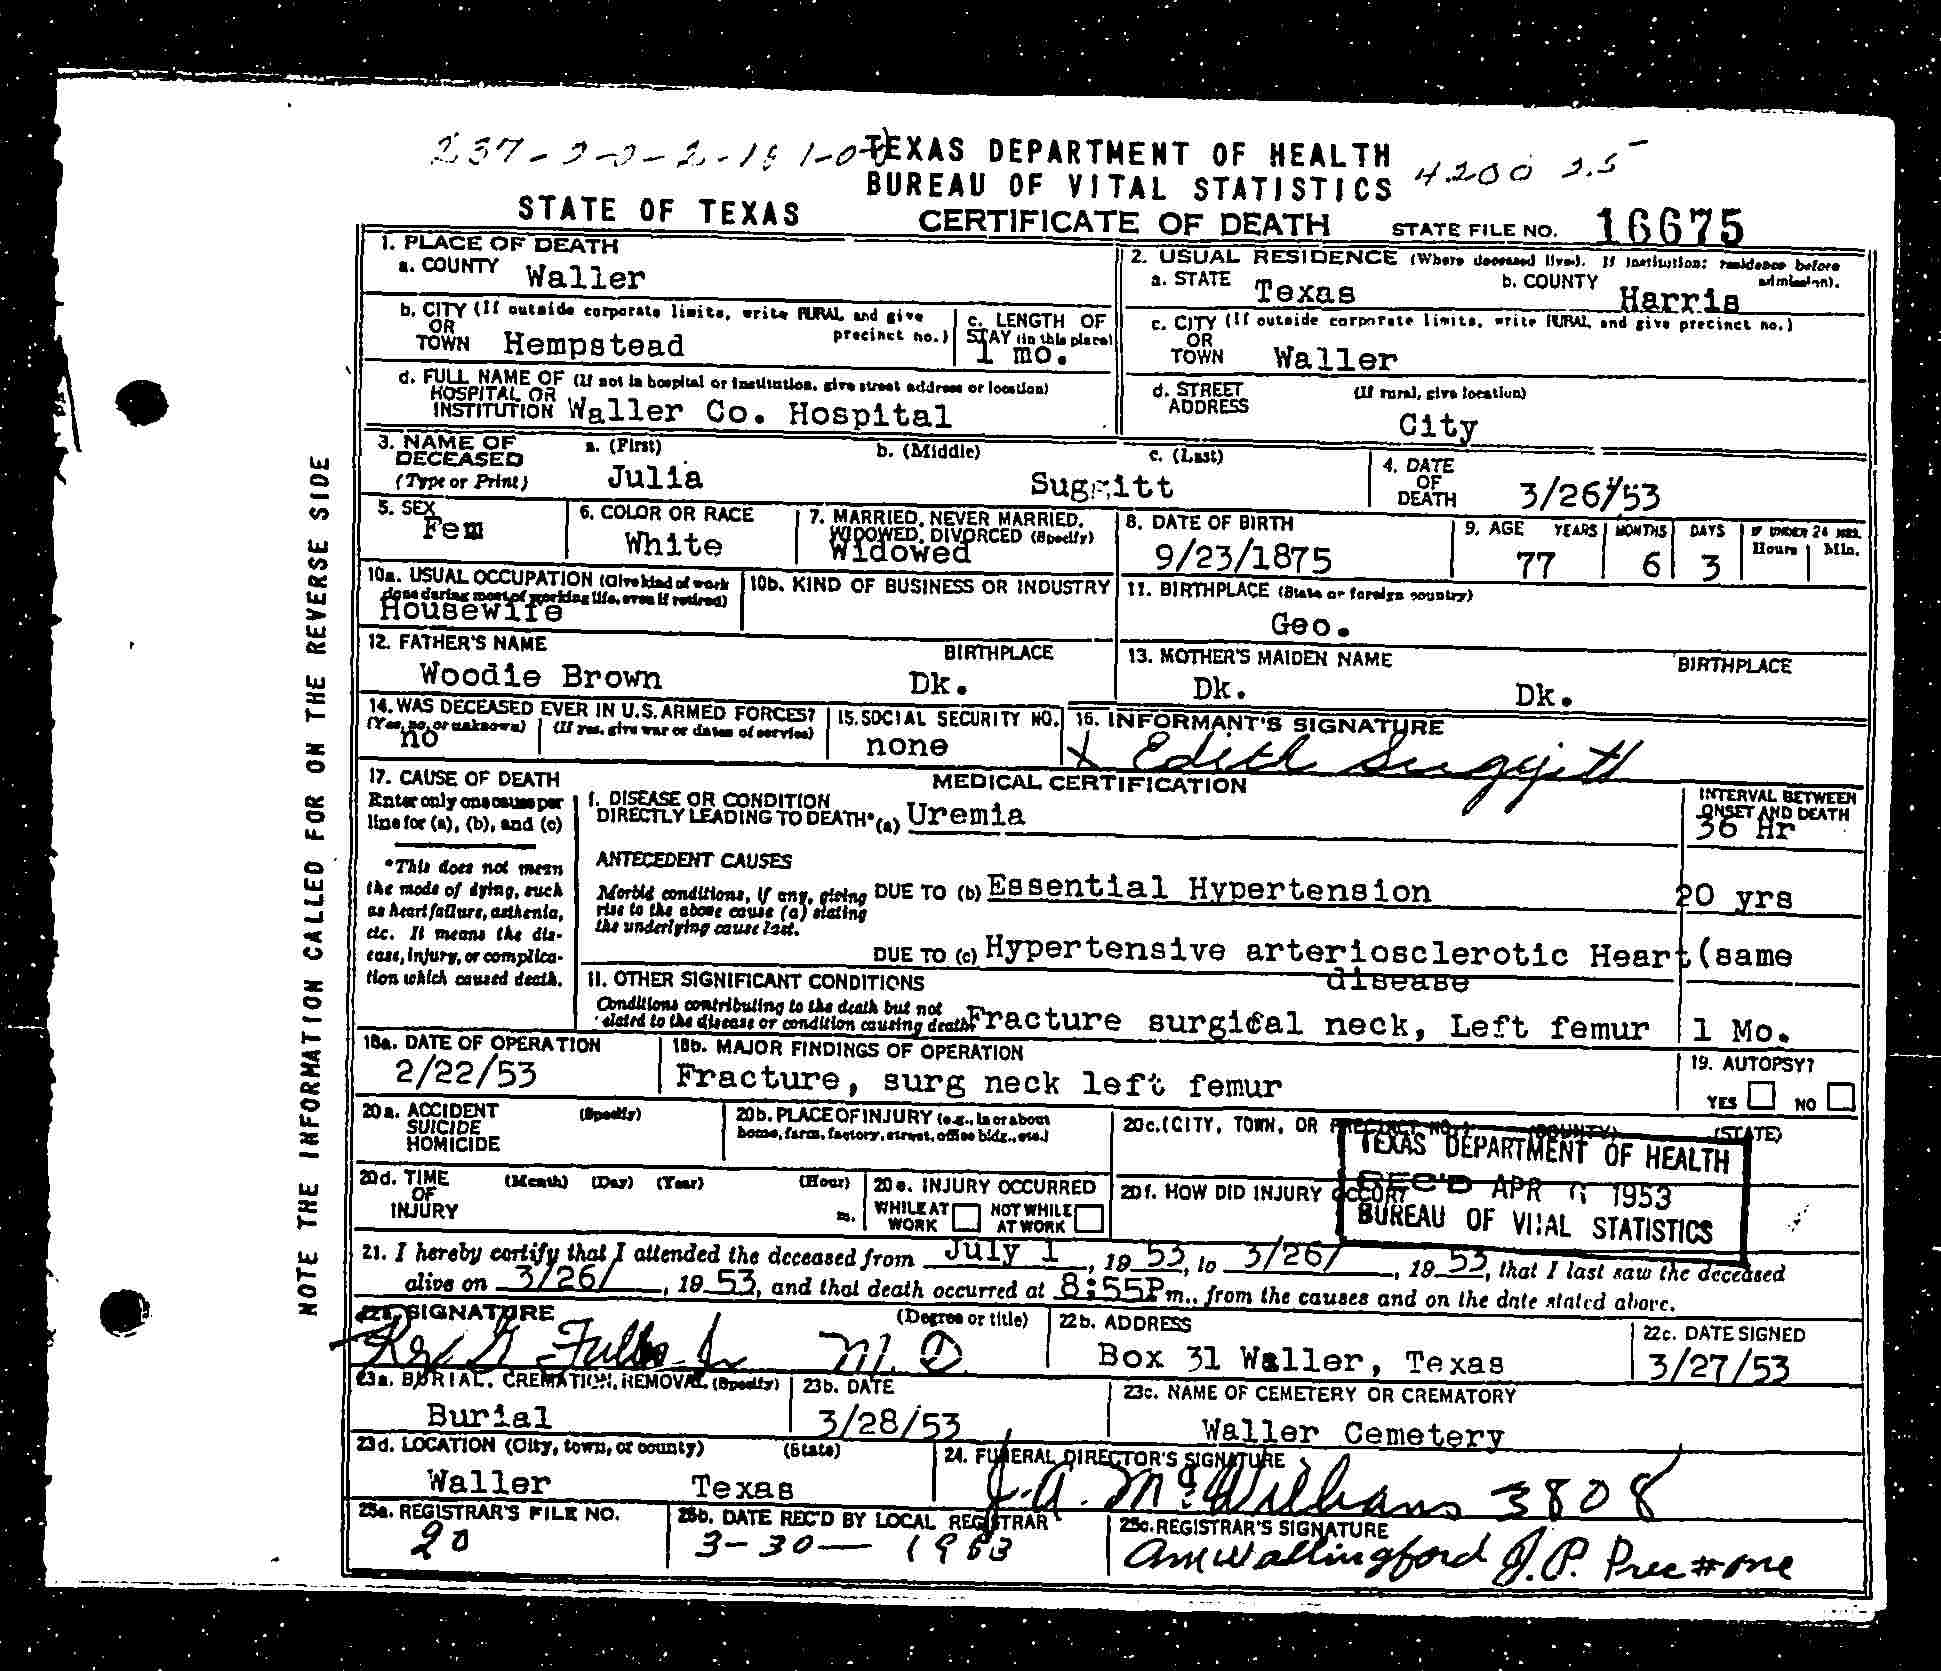 TEXAS DEPARTMENT OF HEALTH
BUREAU OF VITAL STATISTICS 4200 25
STATE OF TEXAS CERTIFICATE OF DEATH STATE FILE NO. 16675
NOTE THE INFORMATION CALLED FOR ON THE REVERSE SIDE
1. PLACE OF DEATH
a. COUNTY Waller
2. USUAL RESIDENCE (Where deceased lived. If institution: residence before admission).
a. STATE Texas b. COUNTY Harris
b. CITY (If outside corporate limits, write RURAL and give precinct no.)
OR
TOWN Hempstead
c. LENGTH OF
STAY (in this place)
1 mo.
c. CITY (If outside corporate limits, write RURAL and give precinct no.)
OR
TOWN Waller
d. FULL NAME OF (If not in hospital or institution, give street address or location)
HOSPITAL OR
INSTITUTION Waller Co. Hospital
d. STREET (If rural, give location)
ADDRESS
City
3. NAME OF a. (First) b. (Middle) c. (Last)
DECEASED
(Type or Print) Julia Suggitt
4. DATE
OF
DEATH 3/26/53
5. SEX
Fem
6. COLOR OR RACE
White
7. MARRIED, NEVER MARRIED,
WIDOWED, DIVORCED (Specify)
Widowed
8. DATE OF BIRTH
9/23/1875
9. AGE YEARS MONTHS DAYS IF UNDER 24 HRS.
Hours Min.
77 6 3
10a. USUAL OCCUPATION (Give kind of work
done during most of working life, even if retired)
Housewife
10b. KIND OF BUSINESS OR INDUSTRY
11. BIRTHPLACE (State or foreign country)
Geo.
12. FATHER'S NAME BIRTHPLACE
Woodie Brown Dk.
13. MOTHER'S MAIDEN NAME BIRTHPLACE
Dk. Dk.
14. WAS DECEASED EVER IN U.S. ARMED FORCES?
(Yes, no, or unknown) (If yes, give war or dates of service)
no
15. SOCIAL SECURITY NO.
none
16. INFORMANT'S SIGNATURE
X Edith Suggitt
17. CAUSE OF DEATH
Enter only one cause per
line for (a), (b), and (c)
*This does not mean
the mode of dying, such
as heart failure, asthenia,
etc. It means the dis-
ease, injury, or complica-
tion which caused death.
MEDICAL CERTIFICATION
INTERVAL BETWEEN
ONSET AND DEATH
I. DISEASE OR CONDITION
DIRECTLY LEADING TO DEATH* (a) Uremia 36 Hr
ANTECEDENT CAUSES
Morbid conditions, if any, giving
rise to the above cause (a) stating
the underlying cause last.
DUE TO (b) Essential Hypertension 20 yrs
DUE TO (c) Hypertensive arteriosclerotic Heart (same
disease
II. OTHER SIGNIFICANT CONDITIONS
Conditions contributing to the death but not
related to the disease or condition causing death. Fracture surgical neck, Left femur 1 Mo.
18a. DATE OF OPERATION
2/22/53
18b. MAJOR FINDINGS OF OPERATION
Fracture, surg neck left femur
19. AUTOPSY?
YES NO
20a. ACCIDENT (Specify)
SUICIDE
HOMICIDE
20b. PLACE OF INJURY (e.g., in or about
home, farm, factory, street, office bldg., etc.)
20c. (CITY, TOWN, OR PRECINCT NO.) (COUNTY) (STATE)
20d. TIME (Month) (Day) (Year) (Hour)
OF
INJURY m.
20e. INJURY OCCURRED
WHILE AT WORK NOT WHILE AT WORK
20f. HOW DID INJURY OCCUR?
TEXAS DEPARTMENT OF HEALTH
REC'D APR 1953
BUREAU OF VITAL STATISTICS
21. I hereby certify that I attended the deceased from July 1, 1953, to 3/26/, 1953, that I last saw the deceased
alive on 3/26/, 1953, and that death occurred at 8:55P m., from the causes and on the date stated above.
22a. SIGNATURE (Degree or title)
M.D.
22b. ADDRESS
Box 31 Waller, Texas
22c. DATE SIGNED
3/27/53
23a. BURIAL, CREMATION, REMOVAL (Specify)
Burial
23b. DATE
3/28/53
23c. NAME OF CEMETERY OR CREMATORY
Waller Cemetery
23d. LOCATION (City, town, or county) (State)
Waller Texas
24. FUNERAL DIRECTOR'S SIGNATURE
J.A. McWilliams 3808
25a. REGISTRAR'S FILE NO.
20
25b. DATE REC'D BY LOCAL REGISTRAR
3-30-1953
25c. REGISTRAR'S SIGNATURE
AM Wallingford J.P. Prec # one